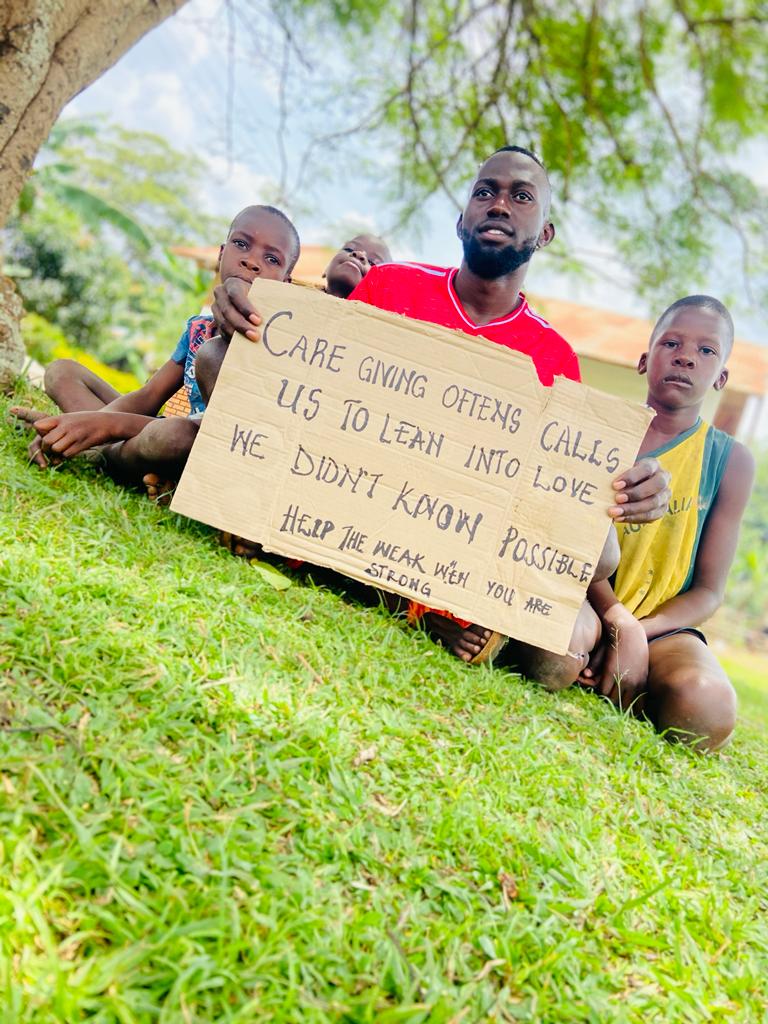 CARE GIVING OFTENS CALLS
US TO LEAN INTO LOVE
WE DIDN'T KNOW POSSIBLE
HELP THE WEAK WEH YOU ARE
STRONG